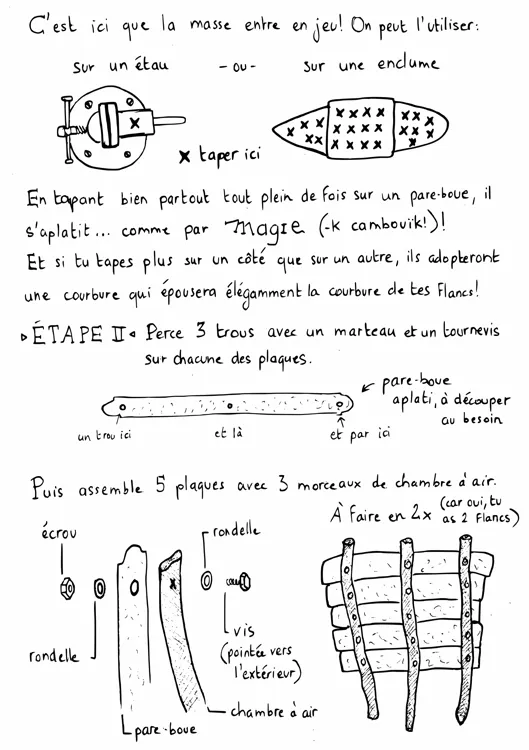 C'est ici que la masse entre en jeu! On peut l'utiliser:
sur un étau - ou - sur une enclume
x taper ici
En tapant bien partout tout plein de fois sur un pare-boue, il
s'aplatit... comme par MAGIE (-K cambouïk!)!
Et si tu tapes plus sur un côté que sur un autre, ils adopteront
une courbure qui épousera élégamment la courbure de tes flancs!
ÉTAPE II Perce 3 trous avec un marteau et un tournevis
sur chacune des plaques.
pare-boue
aplati, à découper
au besoin
un trou ici et là et par ici
Puis assemble 5 plaques avec 3 morceaux de chambre à air.
À faire en 2x (car oui, tu
as 2 flancs)
écrou
rondelle
rondelle
vis
(pointée vers
l'extérieur)
chambre à air
pare-boue